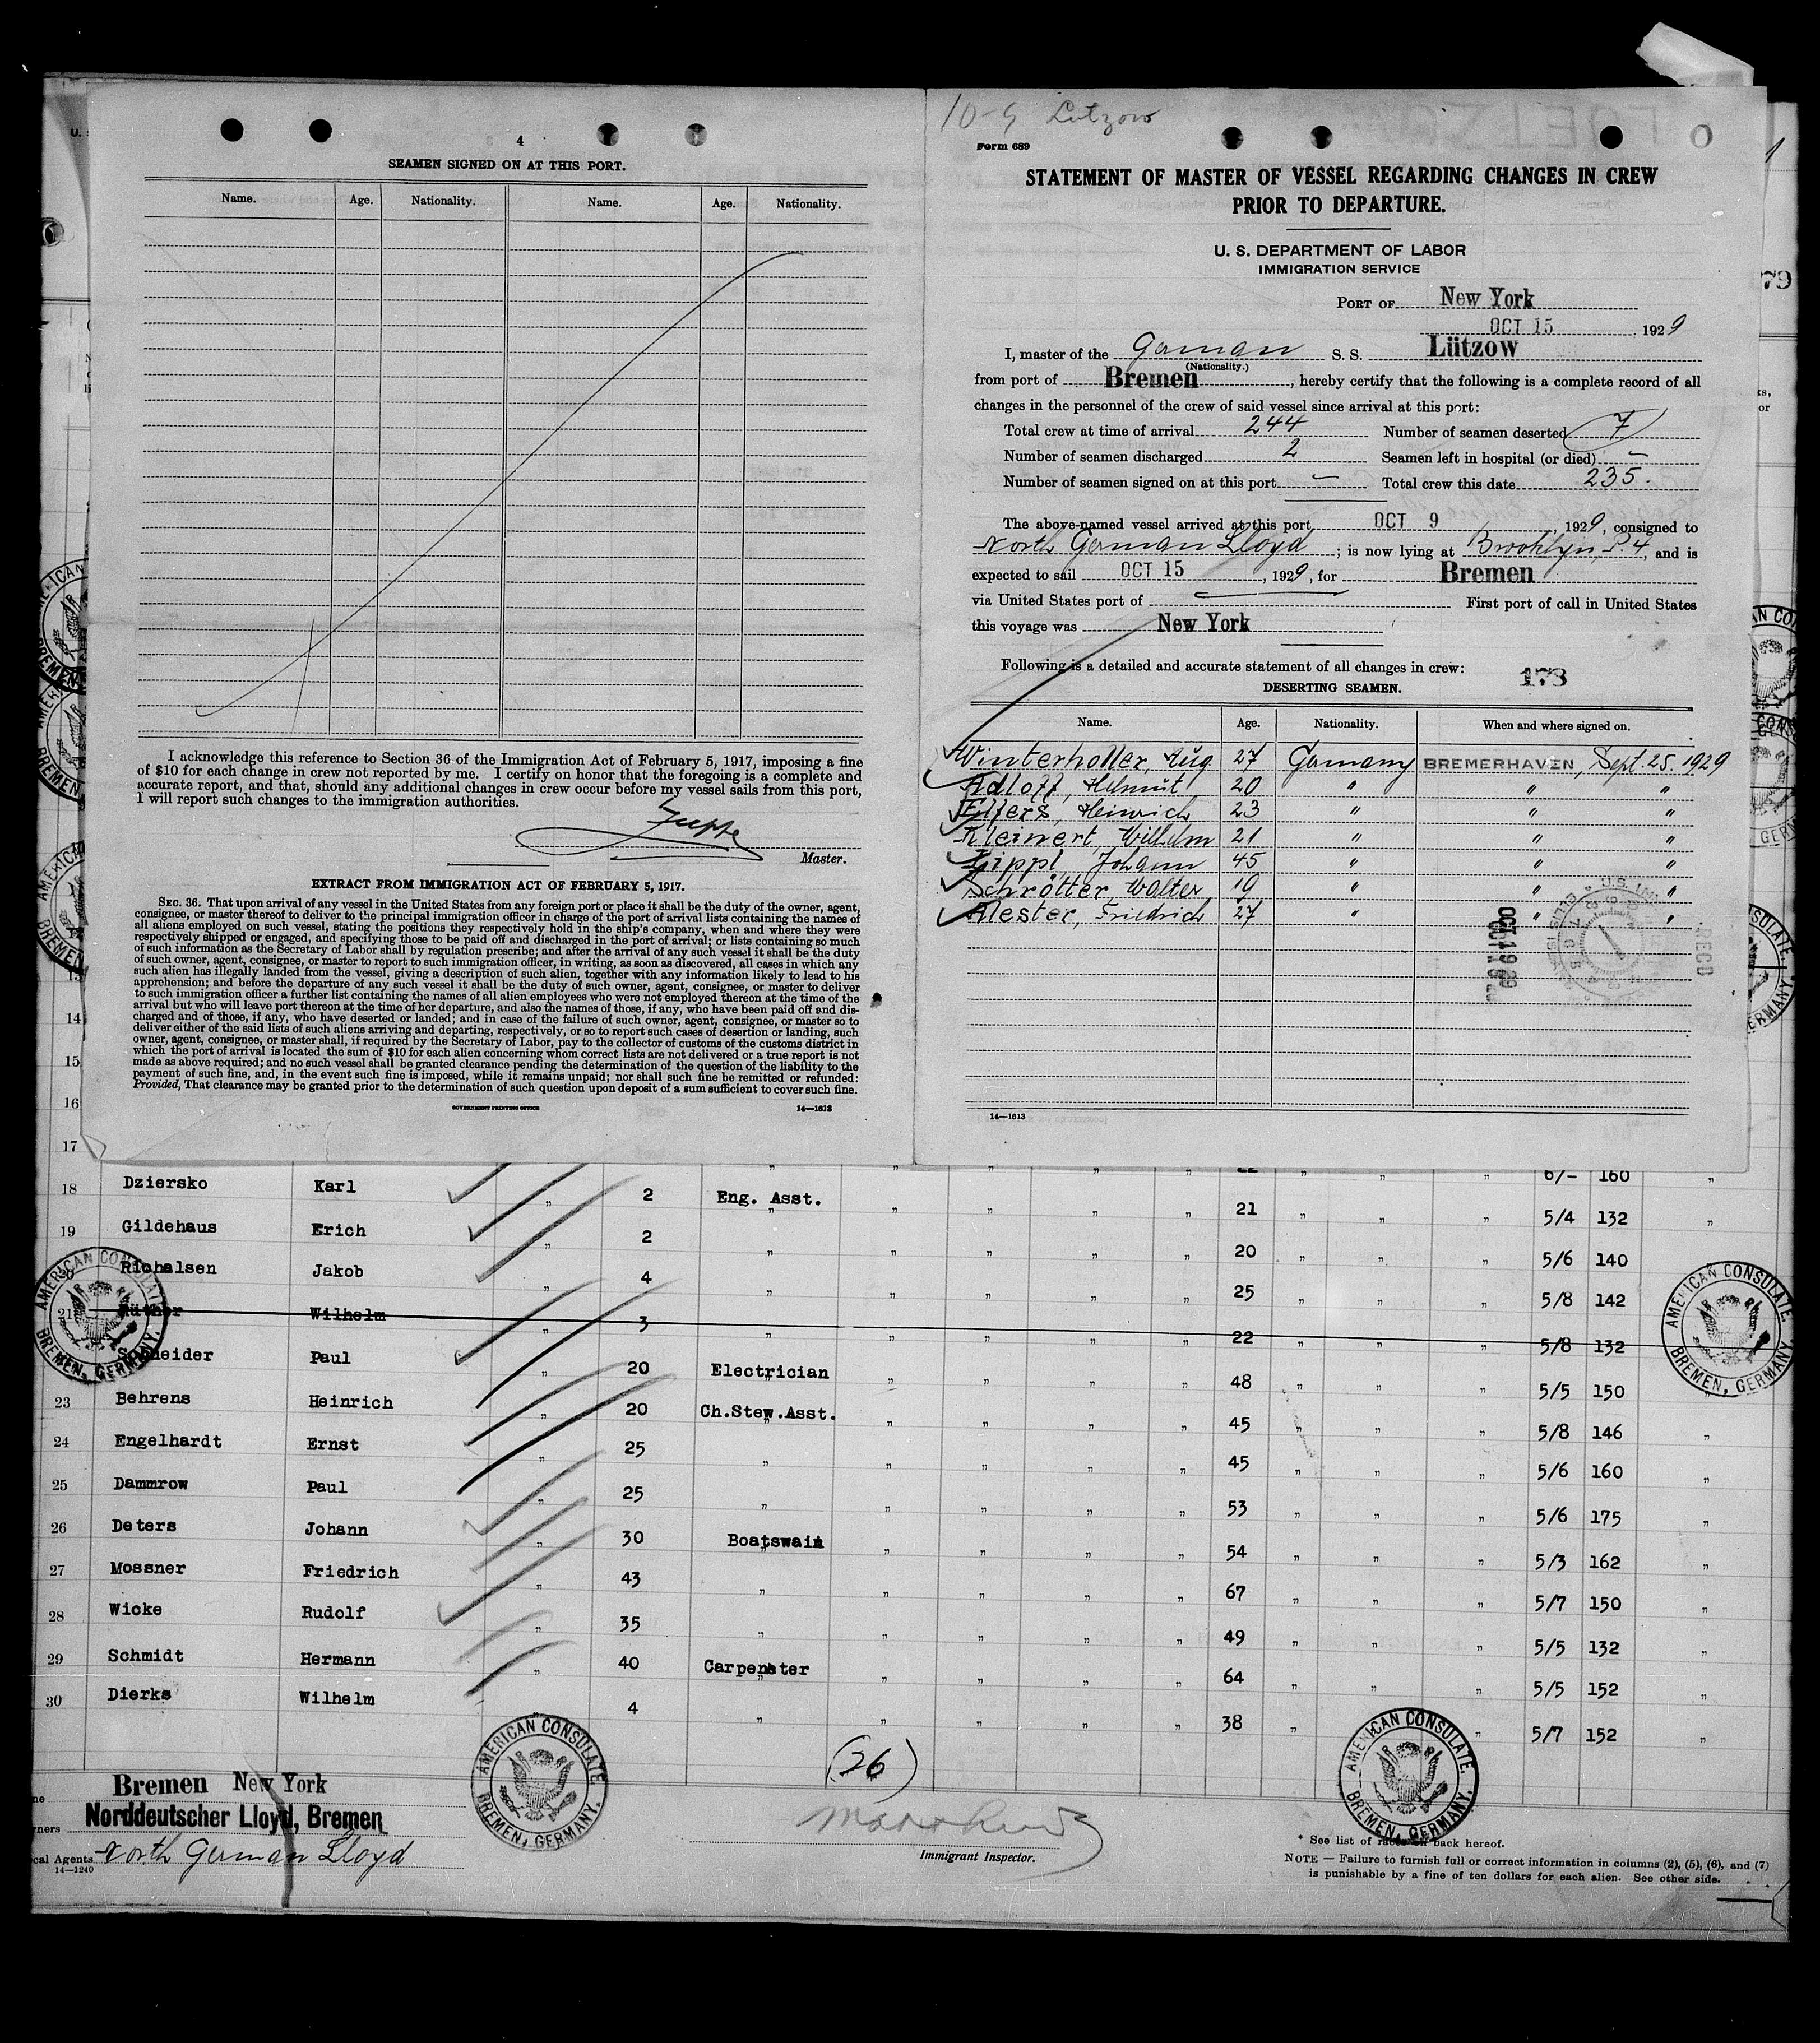 4
SEAMEN SIGNED ON AT THIS PORT.
Name. Age. Nationality. Name. Age. Nationality.
I acknowledge this reference to Section 36 of the Immigration Act of February 5, 1917, imposing a fine
of $10 for each change in crew not reported by me. I certify on honor that the foregoing is a complete and
accurate report, and that, should any additional changes in crew occur before my vessel sails from this port,
I will report such changes to the immigration authorities.
Master.
EXTRACT FROM IMMIGRATION ACT OF FEBRUARY 5, 1917.
SEC. 36. That upon arrival of any vessel in the United States from any foreign port or place it shall be the duty of the owner, agent,
consignee, or master thereof to deliver to the principal immigration officer in charge of the port of arrival lists containing the names of
all aliens employed on such vessel, stating the positions they respectively hold in the ship's company, when and where they were
respectively shipped or engaged, and specifying those to be paid off and discharged in the port of arrival; or lists containing so much
of such information as the Secretary of Labor shall by regulation prescribe; and after the arrival of any such vessel it shall be the duty
of such owner, agent, consignee, or master to report to such immigration officer, in writing, as soon as discovered, all cases in which any
such alien has illegally landed from the vessel, giving a description of such alien, together with any information likely to lead to his
apprehension; and before the departure of any such vessel it shall be the duty of such owner, agent, consignee, or master to deliver
to such immigration officer a further list containing the names of all alien employees who were not employed thereon at the time of the
arrival but who will leave port thereon at the time of her departure, and also the names of those, if any, who have been paid off and dis-
charged and of those, if any, who have deserted or landed; and in case of the failure of such owner, agent, consignee, or master so to
deliver either of the said lists of such aliens arriving and departing, respectively, or so to report such cases of desertion or landing, such
owner, agent, consignee, or master shall, if required by the Secretary of Labor, pay to the collector of customs of the customs district in
which the port of arrival is located the sum of $10 for each alien concerning whom correct lists are not delivered or a true report is not
made as above required; and no such vessel shall be granted clearance pending the determination of the question of the liability to the
payment of such fine, and, in the event such fine is imposed, while it remains unpaid; nor shall such fine be remitted or refunded:
Provided, That clearance may be granted prior to the determination of such question upon deposit of a sum sufficient to cover such fine.
GOVERNMENT PRINTING OFFICE 14—1613
10-9 Lutzow
Form 689
STATEMENT OF MASTER OF VESSEL REGARDING CHANGES IN CREW
PRIOR TO DEPARTURE.
U. S. DEPARTMENT OF LABOR
IMMIGRATION SERVICE
PORT OF New York
OCT 15, 1929
I, master of the German S. S. Lützow
(Nationality.)
from port of Bremen, hereby certify that the following is a complete record of all
changes in the personnel of the crew of said vessel since arrival at this port:
Total crew at time of arrival 244 Number of seamen deserted 7
Number of seamen discharged 2 Seamen left in hospital (or died) –
Number of seamen signed on at this port – Total crew this date 235.
The above-named vessel arrived at this port OCT 9, 1929, consigned to
North German Lloyd; is now lying at Brooklyn, P. 4, and is
expected to sail OCT 15, 1929, for Bremen
via United States port of — First port of call in United States
this voyage was New York
Following is a detailed and accurate statement of all changes in crew:
178
DESERTING SEAMEN.
Name. Age. Nationality. When and where signed on.
Winterhalter, Aug. 27 Germany BREMERHAVEN, Sept. 25. 1929
Adloff, Helmut 20 " " "
Elfers, Heinrich 23 " " "
Kleinert, Wilhelm 21 " " "
Lippl, Johann 45 " " "
Schrötter, Walter 19 " " "
Alester, Friedrich 27 " " "
RECD
14—1613
14
15
16
17
" " " " 22 " " " 6/- 160 "
18 Dziersko Karl " 2 Eng. Asst. " " " " 21 " " " 5/4 132 "
19 Gildehaus Erich " 2 " " " " " 20 " " " 5/6 140
Richelsen Jakob " 4 " " " " " 25 " " " 5/8 142
21 Wilhelm " 3 " " " " " 22 " " " 5/8 132
Schneider Paul " 20 Electrician " " " " 48 " " " 5/5 150 "
23 Behrens Heinrich " 20 Ch.Stew.Asst. " " " " 45 " " " 5/8 146 "
24 Engelhardt Ernst " 25 " " " " " 45 " " " 5/6 160 "
25 Dammrow Paul " 25 " " " " " 53 " " " 5/6 175 "
26 Deters Johann " 30 Boatswain " " " " 54 " " " 5/3 162 "
27 Mossner Friedrich " 43 " " " " " 67 " " " 5/7 150 "
28 Wicke Rudolf " 35 " " " " " 49 " " " 5/5 132 "
29 Schmidt Hermann " 40 Carpenter " " " " 64 " " " 5/5 152 "
30 Dierks Wilhelm " 4 " " " " " 38 " " 5/7 152 "
(26)
AMERICAN CONSULATE. BREMEN, GERMANY.
AMERICAN CONSULATE. BREMEN, GERMANY.
AMERICAN CONSULATE. BREMEN, GERMANY.
AMERICAN CONSULATE. BREMEN, GERMANY.
Bremen New York
Norddeutscher Lloyd, Bremen
cal Agents North German Lloyd
14—1240
Immigrant Inspector.
* See list of races on back hereof.
NOTE — Failure to furnish full or correct information in columns (2), (5), (6), and (7)
is punishable by a fine of ten dollars for each alien. See other side.